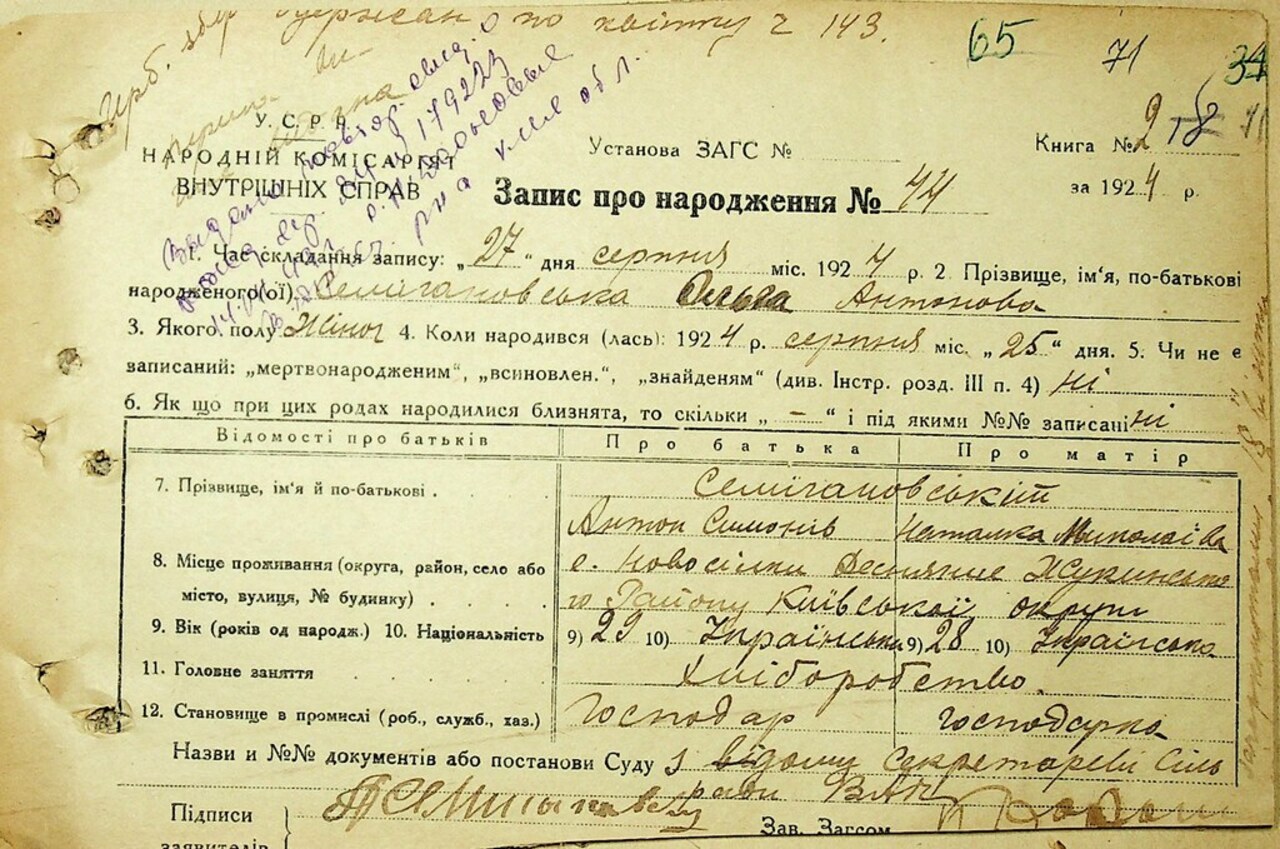 по квіту ч 143.
65 71 34
У. С. Р. Р.
НАРОДНІЙ КОМІСАРІЯТ
ВНУТРІШНІХ СПРАВ
Установа ЗАГС №
Книга № 2
за 1924 р.
Запис про народження № 44
1. Час складання запису: „27“ дня серпня міс. 1924 р. 2. Прізвище, ім'я, по-батькові
народженого(ої) Семігановська Ольга Антонова
3. Якого полу Жіноч 4. Коли народився (лась): 1924 р. серпня міс. „25“ дня. 5. Чи не є
записаний: „мертвонародженим“, „всиновлен.“, „знайденям“ (див. Інстр. розд. III п. 4) ні
6. Як що при цих родах народилися близнята, то скільки „ — “ і під якими №№ записані ні
Відомості про батьків Про батька Про матір
7. Прізвище, ім'я й по-батькові . Семігановській
Антон Симонів Наталка Миколаіва
8. Місце проживання (округа, район, село або с. Новосілки Деснянские Жукинсько
місто, вулиця, № будинку) го Району Київської округи
9. Вік (років од народж.) 10. Національність 9) 29 10) Українська 9) 28 10) Українська
11. Головне заняття Хліборобство.
12. Становище в промислі (роб., служб., хаз.) Господар Господарка
Назви и №№ документів або постанови Суду з відому секретареві Сіль
ради
Підписи
заявителів
Зав. Загсом